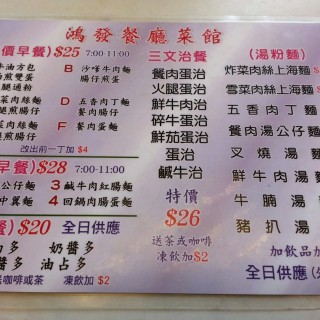 鴻發餐廳菜館
價早餐) $25 7:00-11:00
牛油方包
煎雙蛋
腿通粉
B 沙嗲牛肉麵
腸仔煎蛋
菜肉絲麵
腿煎腸仔
D 五香肉丁麵
餐肉腸仔
煎腸仔
F 餐肉蛋麵
改出前一丁加 $4
早餐)$28 7:00-11:00
公仔麵 3 鹹牛肉紅腸麵
中翼麵 4 回鍋肉腸蛋麵
餐)$20 全日供應
奶醬多
醬多 油占多
咖啡或茶 凍飲加 $2
三文治餐
餐肉蛋治
火腿蛋治
鮮牛肉治
碎牛蛋治
鮮茄蛋治
蛋治
鹹牛治
特價
$26
送茶或咖啡
凍飲加$2
(湯粉麵)
炸菜肉絲上海麵
雪菜肉絲上海麵
五香肉丁麵
餐肉湯公仔麵
叉燒湯麵
鮮牛肉湯麵
牛腩湯
豬扒湯
加飲品加
全日供應